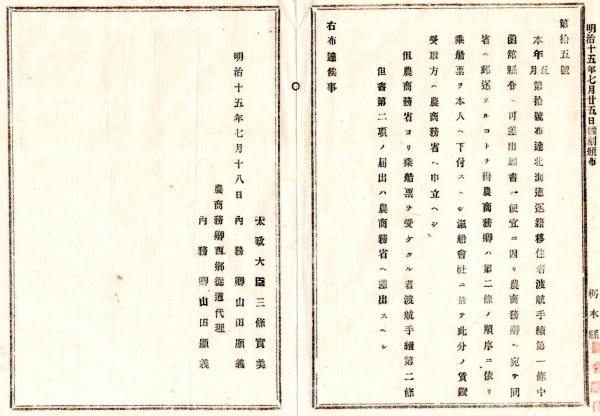 明治十五年七月廿五日飜刻頒布
栃木縣
第拾五號
本年五月第拾號布達北海道運籍移住者渡航手續第一條中
函館縣令ヘ可差出願書ハ便宜ニ因リ農商務卿ヘ宛テ同
省ヘ郵送スルコトヲ得農商務卿ハ第二條ノ順序ニ依リ
乘船票ヲ本人ヘ下付スヘシ滊船會社ニ於テ此分ノ賃錢
受取方ハ農商務省ヘ申立ヘシ
但農商務省ヨリ乘船票ヲ受タクル者渡航手續第二條
但書第二項ノ届出ハ農商務省ヘ差出スヘシ
右布達候事
明治十五年七月十八日
太政大臣三條實美
內務卿山田顯義
農商務卿西鄕從道代理
內務卿山田顯義